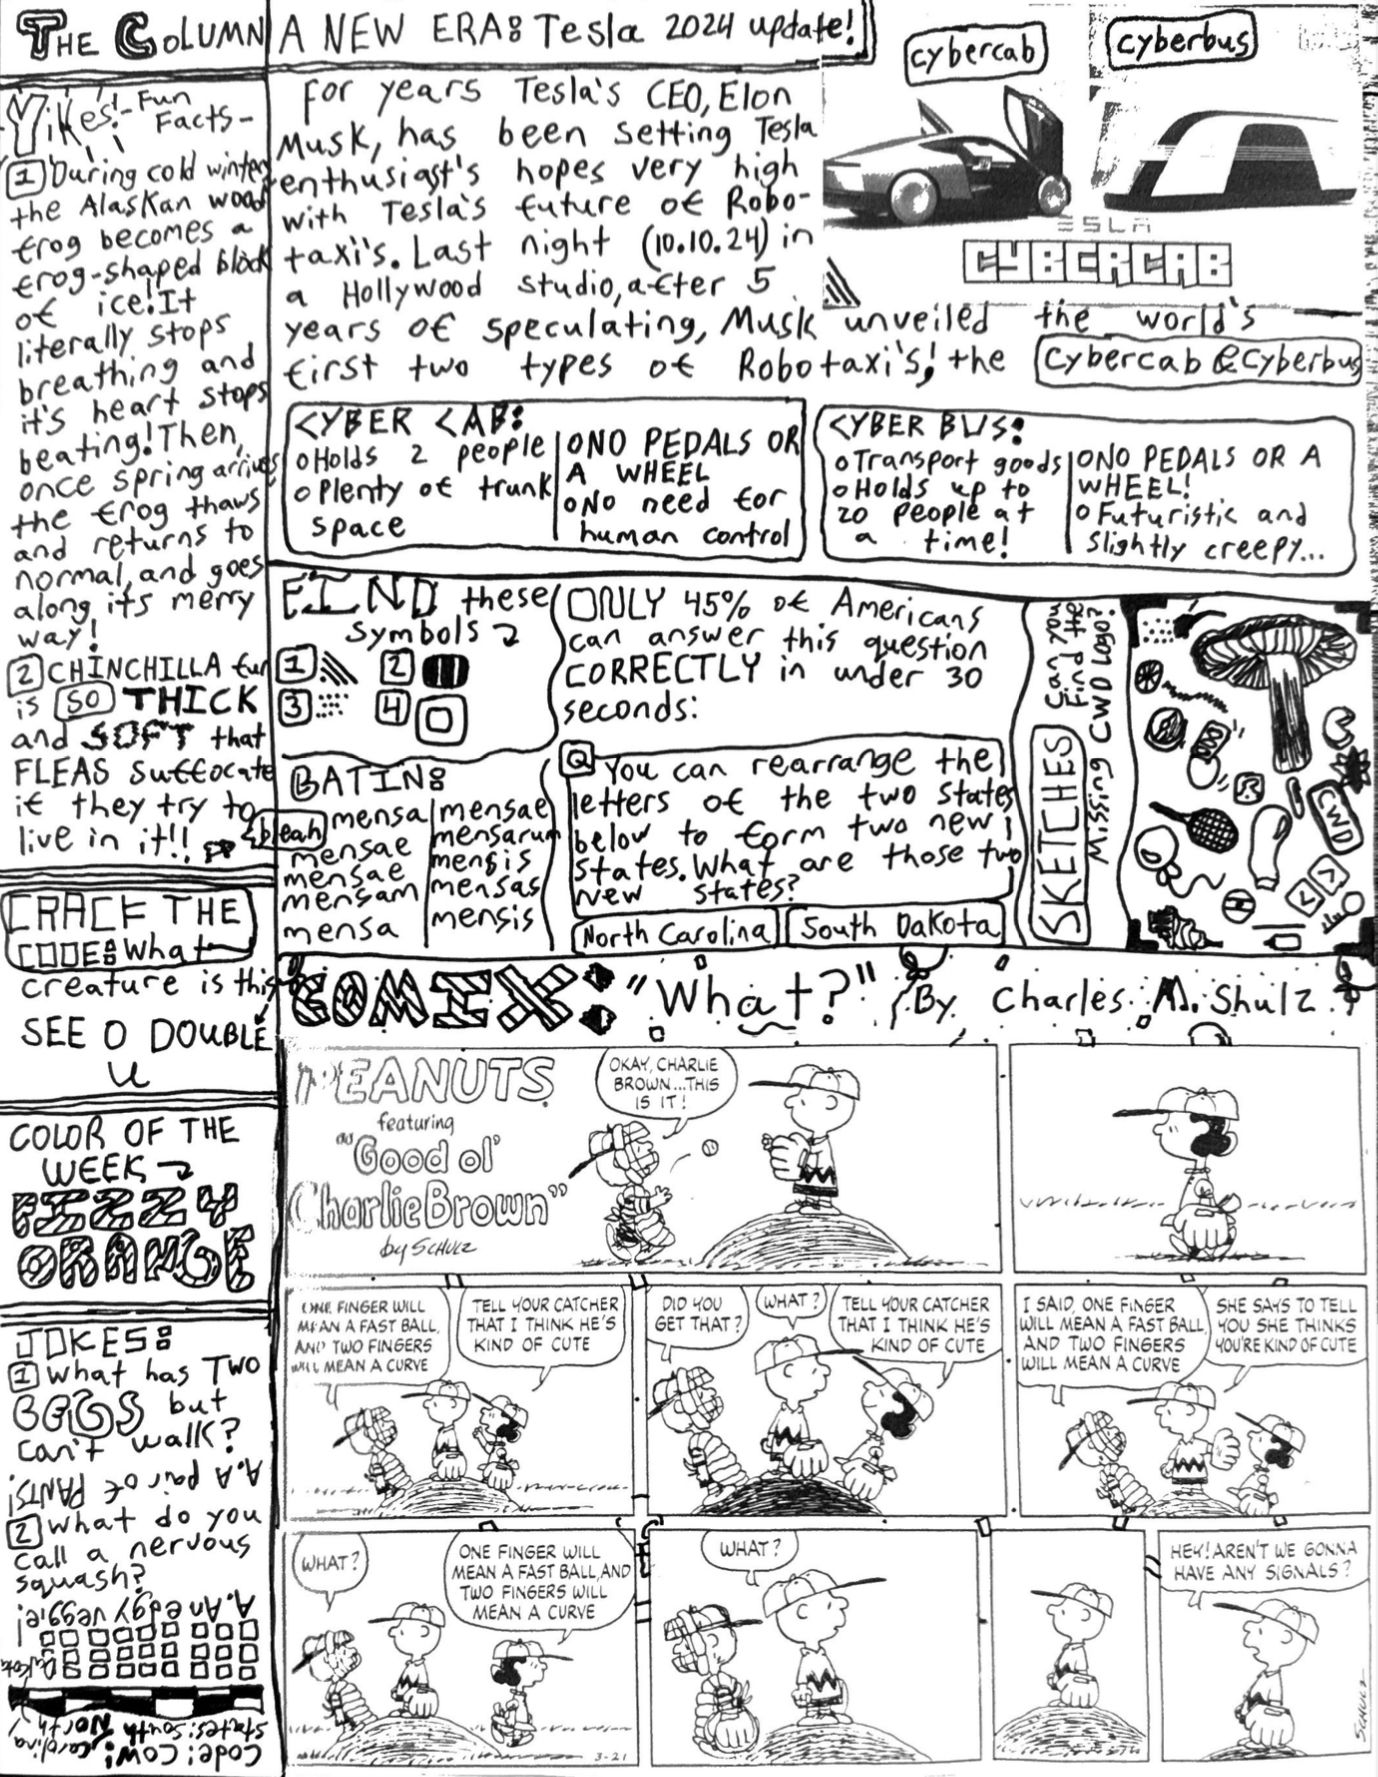 THE COLUMN
Yikes!
-Fun Facts-
1 During cold winters
the Alaskan wood
frog becomes a
frog-shaped block
of ice! It
literally stops
breathing and
it's heart stops
beating! Then,
once spring arrives
the frog thaws
and returns to
normal, and goes
along it's merry
way!
2 CHINCHILLA fur
is SO THICK
and SOFT that
FLEAS suffocate
if they try to
live in it!!
bleah
CRACK THE
CODE: What
creature is this
SEE O DOUBLE
U
COLOR OF THE
WEEK
FIZZY
ORANGE
JOKES:
1 What has TWO
LEGS but
can't walk?
A. A pair of PANTS!
2 What do you
call a nervous
squash?
A. An edgy veggie!
Code: COW!
states: South
Dakota
North
Carolina
A NEW ERA: Tesla 2024 update!
For years Tesla's CEO, Elon
Musk, has been setting Tesla
enthusiast's hopes very high
with Tesla's future of Robo-
taxi's. Last night (10.10.24) in
a Hollywood studio, after 5
years of speculating, Musk unveiled the world's
first two types of Robotaxi's, the Cybercab & Cyberbus
cybercab
cyberbus
ESLA
CYBERCAB
CYBER CAB:
o Holds 2 people
o Plenty of trunk
space
o NO PEDALS OR
A WHEEL
o No need for
human control
CYBER BUS:
o Transport goods
o Holds up to
20 people at
a time!
o NO PEDALS OR A
WHEEL!
o Futuristic and
slightly creepy...
FIND these
symbols
1
2
3
4
BATIN:
mensa
mensae
mensae
mensam
mensa
mensae
mensarum
mensis
mensas
mensis
ONLY 45% of Americans
can answer this question
CORRECTLY in under 30
seconds:
Q You can rearrange the
letters of the two states
below to form two new
states. What are those two
new states?
North Carolina
South Dakota
SKETCHES
Can you
find the
missing CWD logo?
CWD
COMIX: "What?" By Charles M. Shulz
PEANUTS
featuring
"Good ol'
Charlie Brown"
by SCHULZ
OKAY, CHARLIE
BROWN...THIS
IS IT!
ONE FINGER WILL
MEAN A FAST BALL,
AND TWO FINGERS
WILL MEAN A CURVE
TELL YOUR CATCHER
THAT I THINK HE'S
KIND OF CUTE
DID YOU
GET THAT?
WHAT?
TELL YOUR CATCHER
THAT I THINK HE'S
KIND OF CUTE
I SAID, ONE FINGER
WILL MEAN A FAST BALL,
AND TWO FINGERS
WILL MEAN A CURVE
SHE SAYS TO TELL
YOU SHE THINKS
YOU'RE KIND OF CUTE
WHAT?
ONE FINGER WILL
MEAN A FAST BALL, AND
TWO FINGERS WILL
MEAN A CURVE
3-21
WHAT?
HEY! AREN'T WE GONNA
HAVE ANY SIGNALS?
SCHULZ